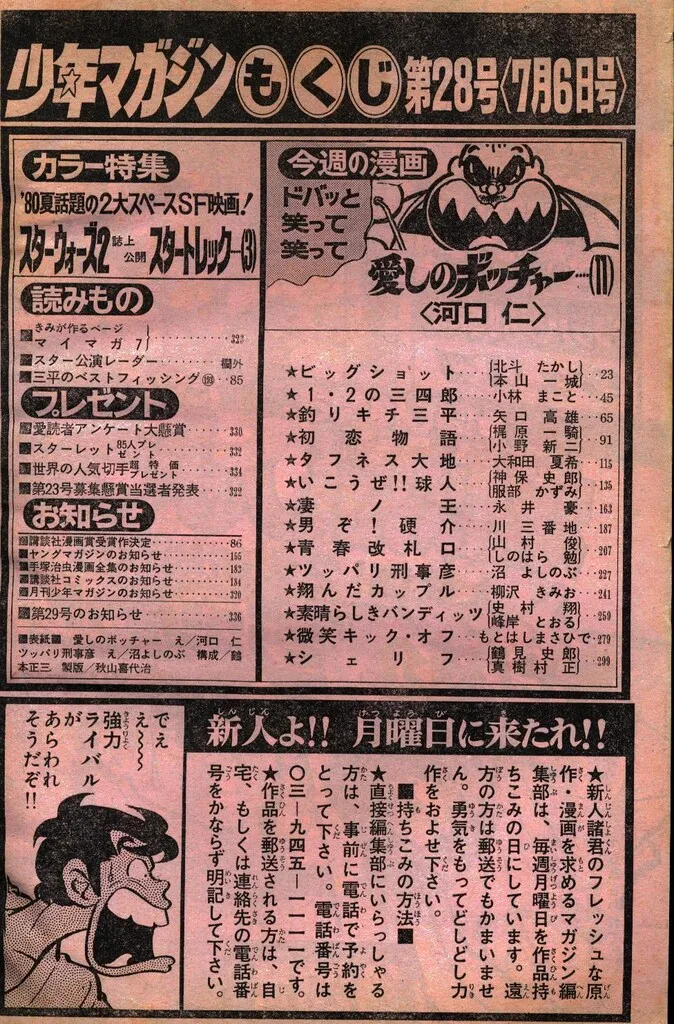 少年マガジンもくじ 第28号〈7月6日号〉
カラー特集
'80夏話題の2大スペースSF映画!
スターウォーズ2 誌上公開 スタートレック…(3)
読みもの
きみが作るページ
マイマガ7……323
スター公演レーダー……欄外
三平のベストフィッシング(193)‥85
プレゼント
愛読者アンケート大懸賞……330
スターレット85人プレゼント……332
世界の人気切手超特価プレゼント……334
第23号募集懸賞当選者発表……322
お知らせ
講談社漫画賞受賞作決定……86
ヤングマガジンのお知らせ……155
手塚治虫漫画全集のお知らせ……183
講談社コミックスのお知らせ……184
月刊少年マガジンのお知らせ……320
第29号のお知らせ……336
■表紙■ 愛しのボッチャー え/河口 仁
ツッパリ刑事彦 え/沼よしのぶ 構成/鶴
本正三 製版/秋山喜代治
今週の漫画
ドバッと
笑って
笑って
愛しのボッチャー…(11)
〈河口 仁〉
★ビッグショット……北斗 たかし 本山 一城…23
★1・2の三四郎……小林 まこと…45
★釣りキチ三平……矢口 高雄…65
★初恋物語……梶原 一騎 小野 新二…91
★タフネス大地……大和田 夏希…115
★いこうぜ!!球人……神保 史郎 服部 かずみ…135
★凄ノ王……永井 豪…163
★男ぞ!硬介……川三番地…187
★青春改札口……山村 俊 しのはら 勉…207
★ツッパリ刑事彦……沼 よしのぶ…227
★翔んだカップル……柳沢 きみお…241
★素晴らしきバンディッツ…史村 翔 峰岸 とおる…259
★微笑キック・オフ…もとはしまさひで…279
★シェリフ……鶴見 史郎 真樹村 正…299
新人よ!! 月曜日に来たれ!!
★新人諸君のフレッシュな原
作・漫画を求めるマガジン編
集部は、毎週月曜日を作品持
ちこみの日にしています。遠
方の方は郵送でもかまいませ
ん。勇気をもってどしどし力
作をおよせ下さい。
■持ちこみの方法■
★直接編集部にいらっしゃる
方は、事前に電話で予約を
とって下さい。電話番号は
〇三―九四五―一一一一です。
★作品を郵送される方は、自
宅、もしくは連絡先の電話番
号をかならず明記して下さい。
でえ
え〜〜〜
強力
ライバル
が
あらわれ
そうだぞ!!